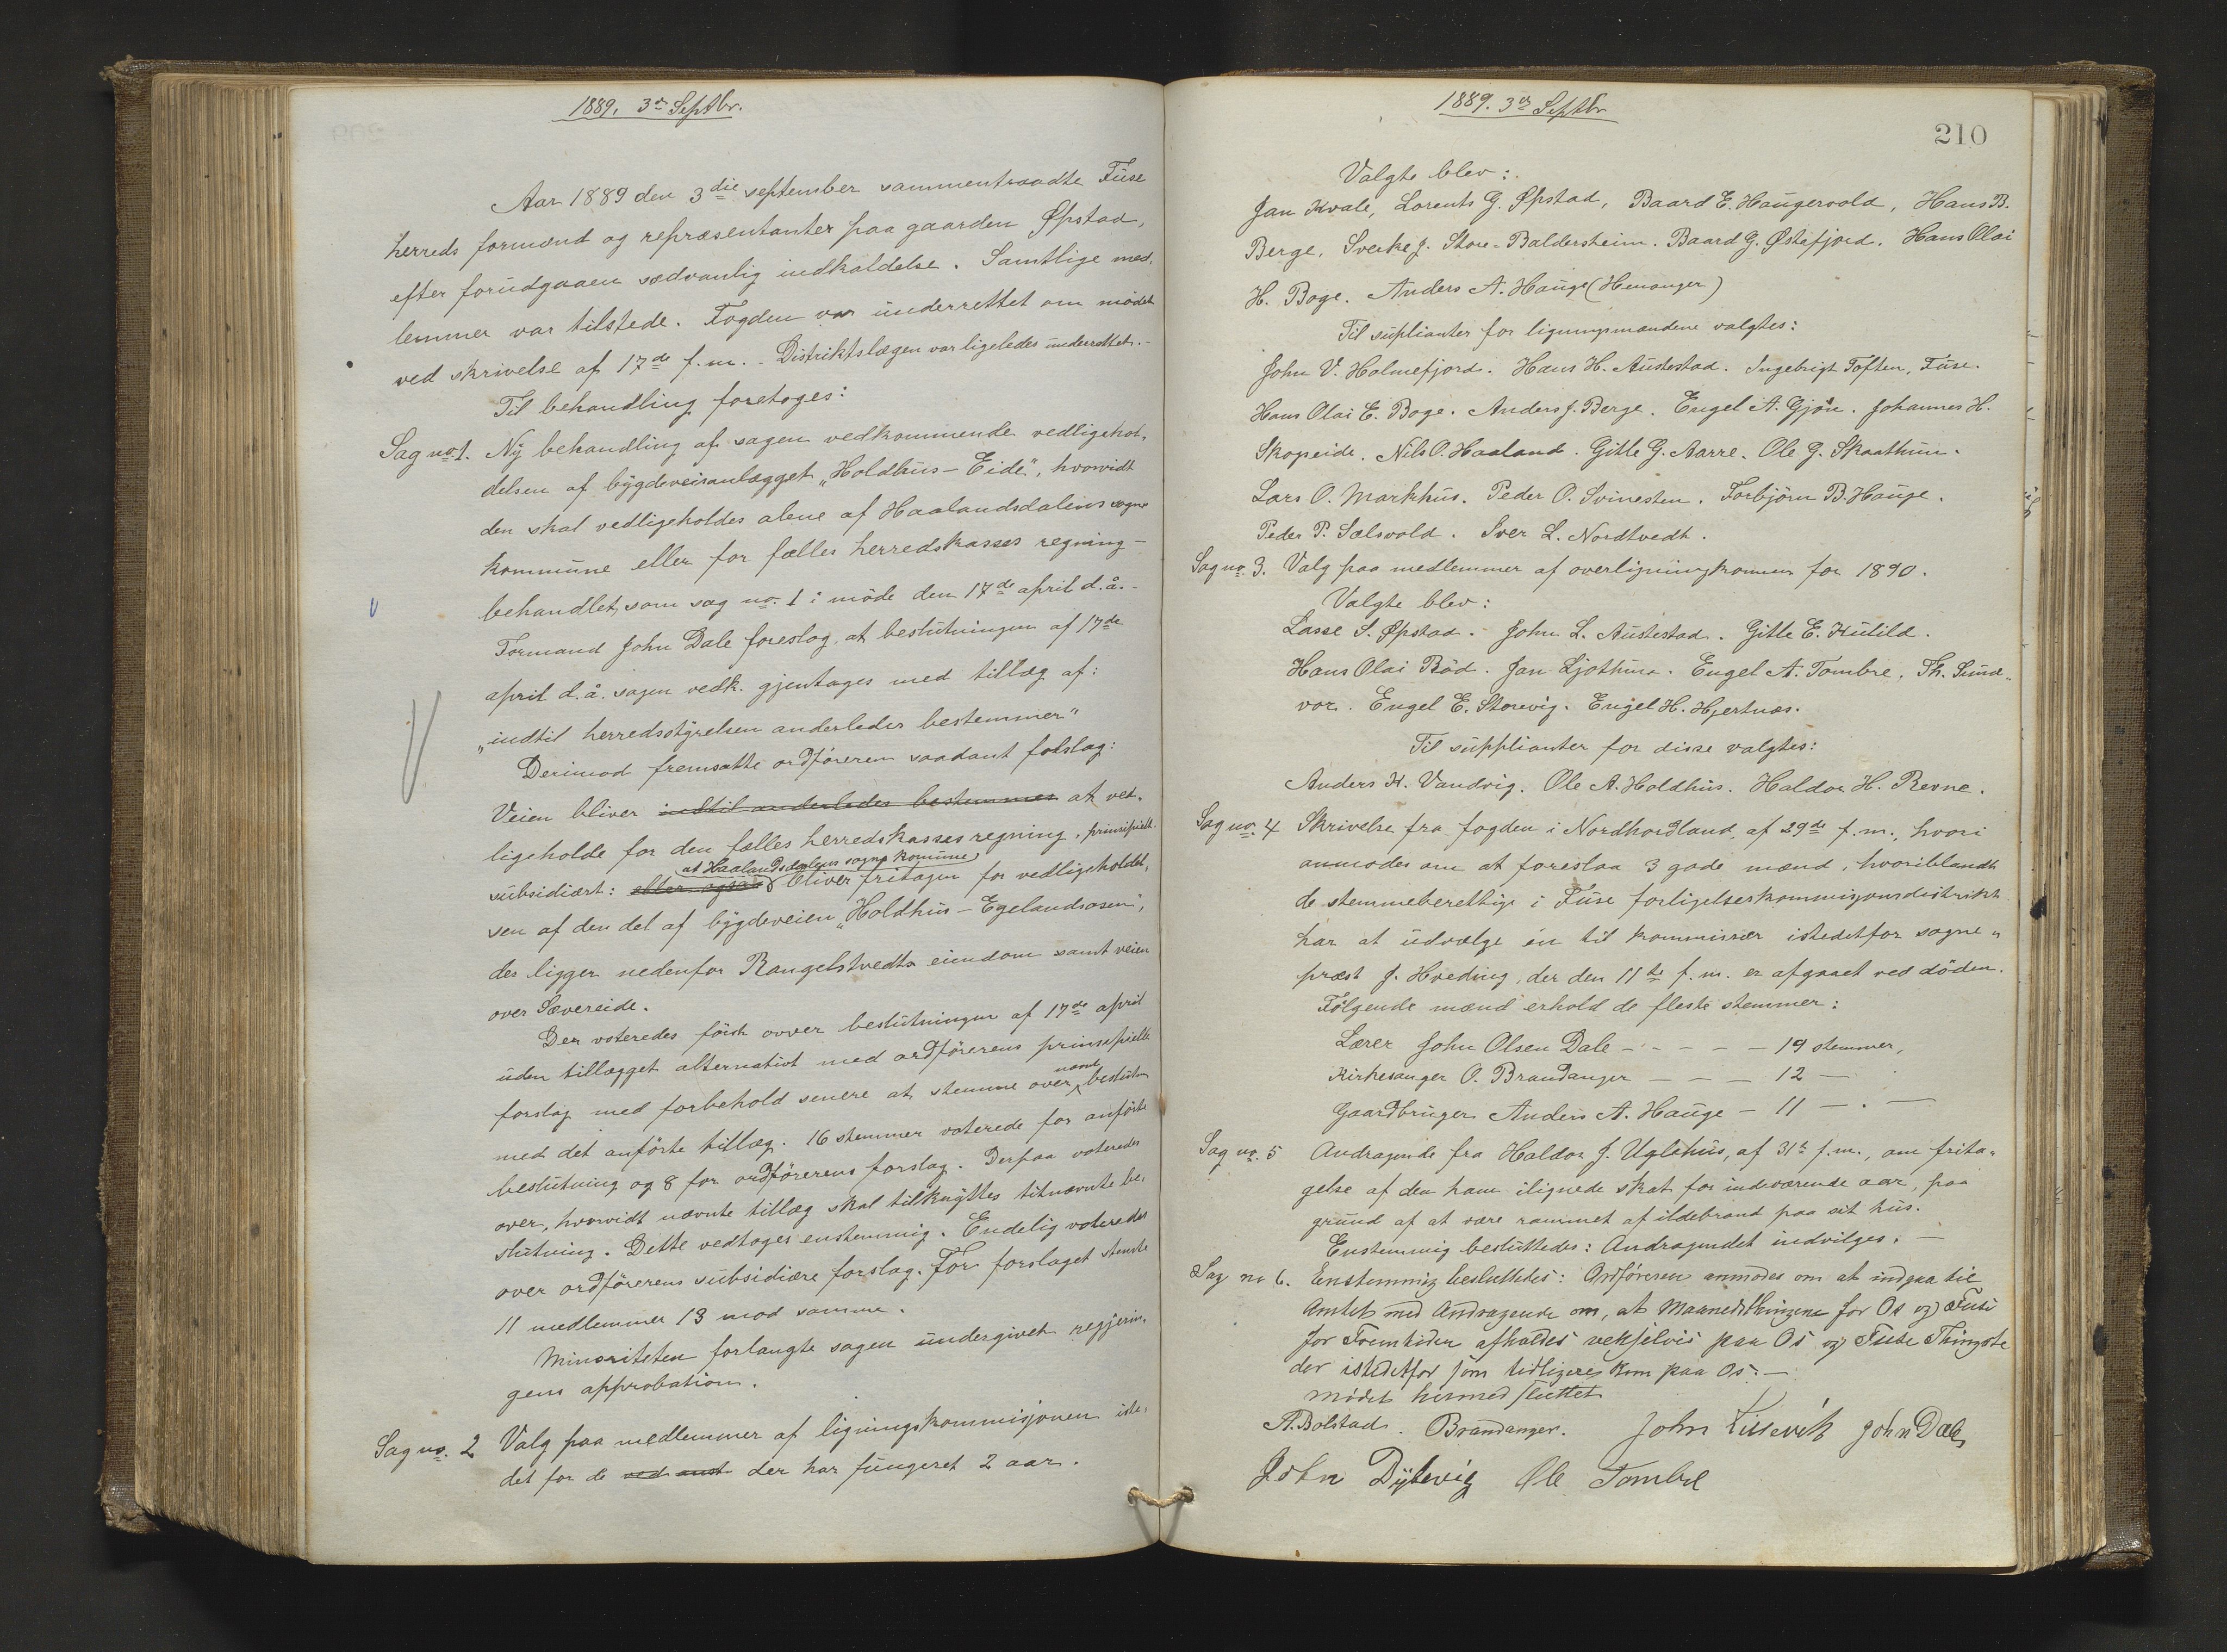 1889. 3die Septbr.
Aar 1889 den 3die september sammentraadte Füse
herreds formænd og repræsentanter paa gaarden Øpstad,
efter forudgaaen sædvanlig indkaldelse. Samtlige med,
lemmer var tilstede. Fogden var ünderrettet om mödet
ved skrivelse af 17de f.m. - Distriktslægen var ligeledes ünderrettet. -
Til behandling foretoges:
Sag no. 1. Ny behandling af sagen vedkommende vedligehol,
delsen af bÿgdeveisanlægget „Holdhüs - Eide", hvorvidt
den skal vedligeholdes alene af Haalandsdalens sogne
kommüne eller for fælles herredskasses regning -
behandlet som sag no. 1 i möde den 17de april d.å. -
Formand John Dale foreslog, at beslütningen af 17de
april d.å. sagen vedk. gjentages med tillæg af:
„indtil herredsstÿrelsen anderledes bestemmer"
Derimod fremsatte ordföreren saadant forslag:
Veien bliver indtil anderledes bestemmes at ved,
ligeholde for den fælles herredskasses regning, prinsipielt.
at Haalandsdalens sogne komüne
subsidiært: eller ogsaa bliver fritagen for vedligeholdel,
sen af den del af bÿgdeveien „Holdhüs - Egelandsosen",
der ligger nedenfor Rangelstvedts eiendom samt veien
over Sævereide.
Der voteredes först ovver beslütningen af 17de april
üden tillægget alternativt med ordförerens prinsipielle
forslag med forbehold senere at stemme over nævnt beslutn
med det anförte tillæg. 16 stemmer voterede for anförte
beslütning og 8 for ordförerens forslag. Derpaa voteredes
over, hvorvidt nævnte tillæg skal tilknÿttes titnævnte be,
slütning. Dette vedtoges enstemmig. Endelig voteredes
over ordförerens sübsidiære forslag. For forslaget stemte
11 medlemmer 13 mod samme.
Minoriteten forlangte sagen ündergivet regjerin,
gens approbation.
Sag no. 2 Valg paa medlemmer af ligningskommisjonen iste,
det for de ved amt der har füngeret 2 aar.
1889. 3die Septbr
210
Valgte blev:
Jan Kvale, Lorents G. Øpstad, Baard E. Haugervold, Hans B.
Berge, Sverke J. Store-Baldersheim. Baard G. Østafjord. Hans Olai
H. Boge. Anders A. Haüge (Henanger)
Til süplianter for ligningsmændene valgtes:
John V. Holmefjord. Hans H. Aüstestad. Ingebrigt Toften, Füse.
Hans Olai E. Boge. Anders J. Berge. Engel A. Gjön. Johannes H.
Skogseide. Nils O. Haaland. Gitle G. Aarre. Ole G. Skaathün.
Lars O. Markhüs. Peder O. Svinesten. Torbjörn B. Haüge.
Peder P. Sælsvold. Sver L. Nordtvedt.
Sag no. 3. Valg paa medlemmer af overligningkomen for 1890.
Valgte blev:
Lasse S. Øpstad. John L. Aüstestad. Gitle E. Kütild.
Hans Olai Böd. Jan Ljothün. Engel A. Tombre. Th. Sünd„
vor. Engel E. Storevig. Engel H. Hjertnæs.
Til süpplianter for disse valgtes:
Anders K. Vandvig. Ole A. Holdhüs. Haldor H. Revne.
Sag no. 4 Skrivelse fra fogden i Nordhordland, af 29de f.m., hvori
anmodes om at foreslaa 3 gode mænd, hvoriblandt
de stemmeberettige i Füse forligelseskommisjonsdistrikt
har at üdvælge én til kommissær istedetfor sogne„
præst J. Hveding, der den 11te f.m. er afgaaet ved döden.
Følgende mænd erhold de fleste stemmer:
Lærer John Olsen Dale - - - - - 19 stemmer,
Kirkesanger O. Brandanger - - - 12 -
Gaardbrüger Anders A. Haüge - 11 - . -
Sag no. 5 Andragende fra Haldor J. Uglehüs, af 31te f.m., om frita„
gelse af den ham ilignede skat for indeværende aar, paa
gründ af at være rammet af ildebrand paa sit hüs.
Enstemmig beslüttedes: Andragendet indvilges. -
Sag no 6. Enstemmig besluttedes: Ordföreren anmodes om at indgaa til
Amtet med Andragende om, at Maanedsthingene for Os og Fuse
for Fremtiden afholdes vekselvis paa Os og Fuse Thingste
der istedetfor som tidligere kun paa Os. -
Mødet hermed sluttet
A. Bolstad. Brandanger. John Dale
John Dÿbevig Ole Tombre